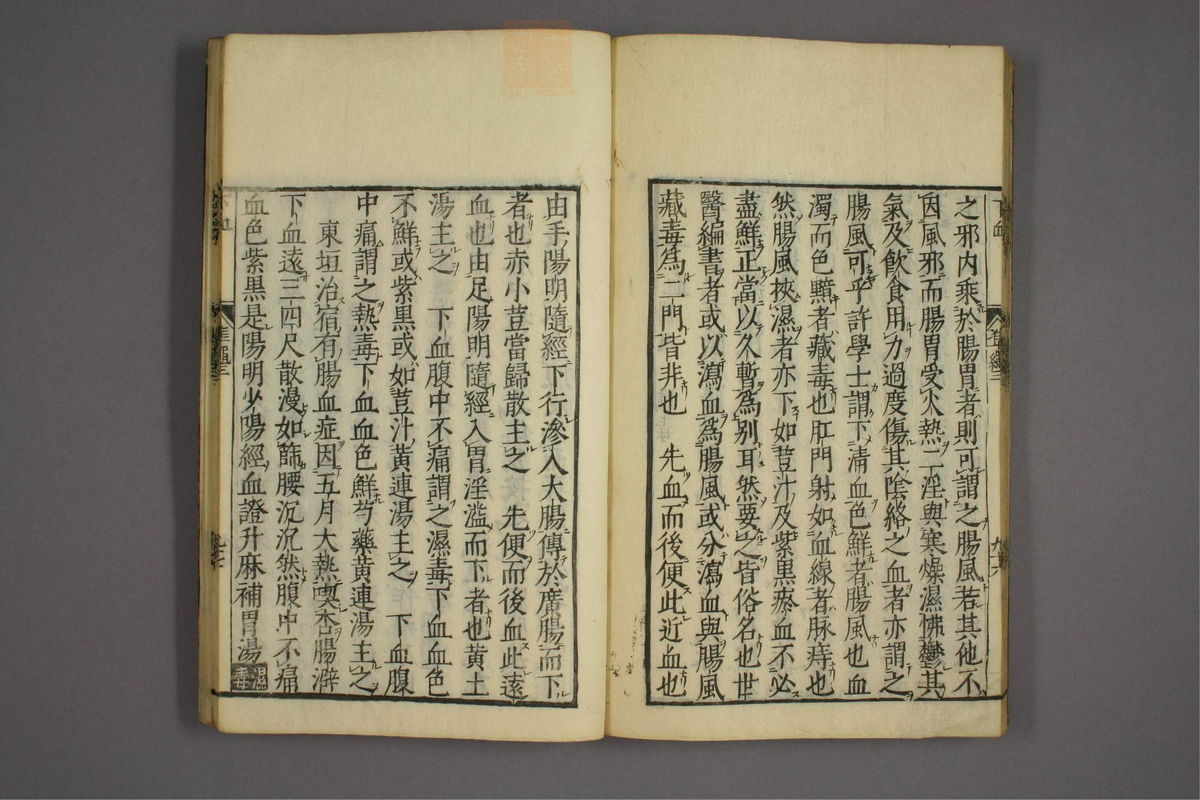 之邪内乘於腸胃者則可謂之腸風若其他不
因風邪而腸胃受火熱二淫與寒燥濕怫鬱其
氣及飲食用力過度傷其陰絡之血者亦謂之
腸風可乎許學士謂下清血色鮮者腸風也血
濁而色黯者藏毒也肛門射如血線者脉痔也
然腸風挾濕者亦下如荳汁及紫黒瘀血不必
盡鮮正當以久暫為別耳然要之皆俗名也世
醫編書者或以瀉血為腸風或分瀉血與腸風
藏毒為二門皆非也　先血而後便此近血也
由手陽明隨經下行滲入大腸傳於廣腸而下
者也赤小荳當歸散主之　先便而後血此遠
血也由足陽明隨經入胃淫濫而下者也黄土
湯主之　下血腹中不痛謂之濕毒下血血色
不鮮或紫黒或如荳汁黄連湯主之　下血腹
中痛謂之熱毒下血血色鮮芍藥黄連湯主之
東垣治宿有腸血症因五月大熱喫杏腸澼
下血遠三四尺散漫如篩腰沉沉然腹中不痛
血色紫黒是陽明少陽經血證升麻補胃湯
濕毒
下血
九十六